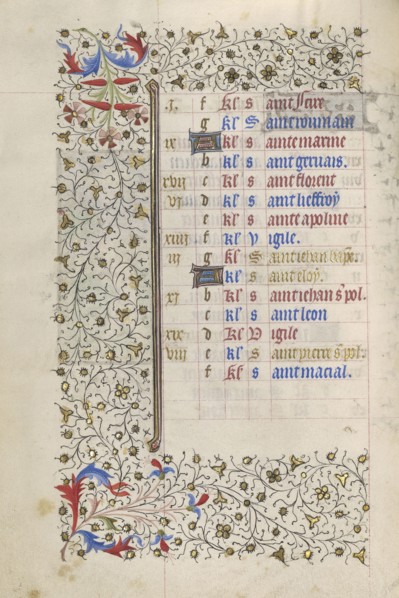 .i. f kl s aint leu
g kl S aint romain
ix A kl s ainte marine
b kl s aint geruais.
xvii c kl s aint florent
vi d kl s aint lieffroy
e kl s ainte apoline
xiiii f kl V igile.
iii g kl S aint iehan bap̃e.
A kl s aint eloy.
xi b kl s aint iehan s pol.
c kl s aint leon
xix d kl V igile
viii e kl S aint pierre s pol.
f kl s aint macial.